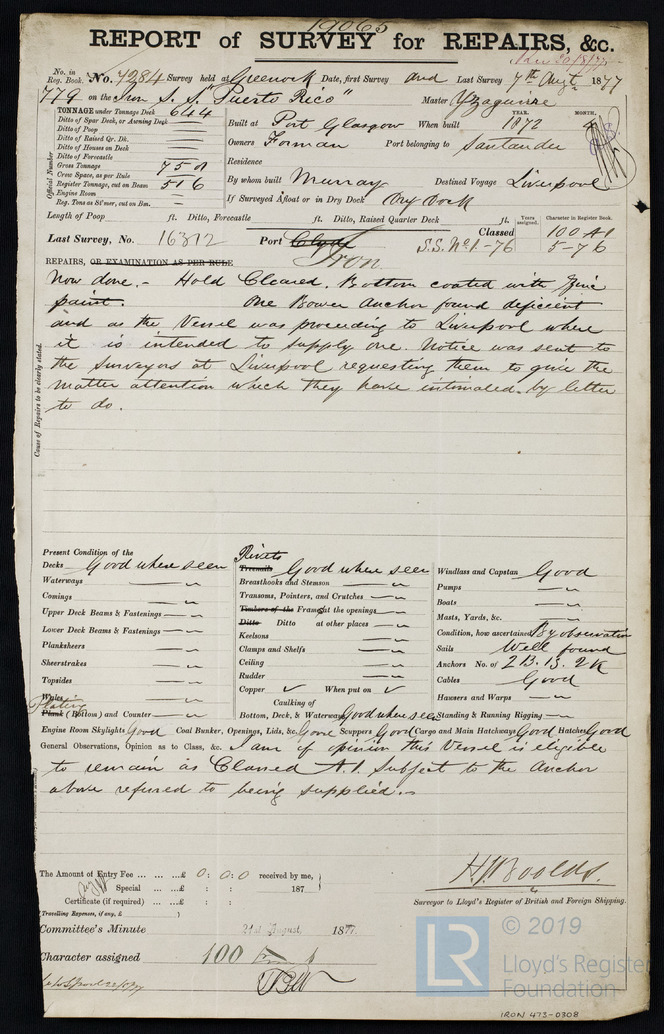 19065
REPORT of SURVEY for REPAIRS, &c.
No. in Reg. Book. No. 7284 Survey held at Greenock Date, first Survey and Last Survey 7th Augt. 1877
779 on the Iron S. S. "Puerto Rico" Master Yzaguirre
TONNAGE under Tonnage Deck 644
Ditto of Spar Deck, or Awning Deck
Ditto of Poop
Ditto of Raised Qr. Dk.
Ditto of Houses on Deck
Ditto of Forecastle
Gross Tonnage 750
Crew Space, as per Rule
Register Tonnage, cut on Beam 516
Engine Room
Reg. Tons as St'mer, cut on Bm.
Official Number
YEAR. MONTH.
Built at Port Glasgow When built 1872 4
Owners Forman Port belonging to Santander
Residence
By whom built Murray Destined Voyage Liverpool
If Surveyed Afloat or in Dry Dock Dry Dock
Length of Poop ft. Ditto, Forecastle ft. Ditto, Raised Quarter Deck ft.
Years assigned. Character in Register Book.
Classed 100 A1
Last Survey, No. 16312 Port Clyde S.S. No. 1.-76 5-76
Iron
REPAIRS, OR EXAMINATION AS PER RULE
Now done. - Hold Cleared. Bottom coated with Zinc
paint. One Bower Anchor found deficient
and as the Vessel was proceeding to Liverpool where
it is intended to supply one. Notice was sent to
the Surveyors at Liverpool requesting them to give the
matter attention which they have intimated by letter
to do.
Cause of Repairs to be clearly stated.
Present Condition of the
Decks Good where seen
Waterways — "
Comings — "
Upper Deck Beams & Fastenings — "
Lower Deck Beams & Fastenings — "
Planksheers
Sheerstrakes — "
Topsides — "
Wales — "
Plating
Plank (Bottom) and Counter — "
Rivets
Treenails Good where seen
Breasthooks and Stemson — "
Transoms, Pointers, and Crutches — "
Timbers of the Frames at the openings — "
Ditto Ditto at other places — "
Keelsons — "
Clamps and Shelfs — "
Ceiling — "
Rudder — "
Copper ✓ When put on ✓
Caulking of
Bottom, Deck, & Waterways Good where seen
Windlass and Capstan Good
Pumps — "
Boats — "
Masts, Yards, &c. — "
Condition, how ascertained By observation
Sails Well found
Anchors No. of 2 B. 1 S. 2 K
Cables Good
Hawsers and Warps — "
Standing & Running Rigging — "
Engine Room Skylights Good Coal Bunker, Openings, Lids, &c. Good Scuppers Good Cargo and Main Hatchways Good Hatches Good
General Observations, Opinion as to Class, &c. I am of opinion this Vessel is eligible
to remain as Classed A.1. Subject to the Anchor
above referred to being supplied.
The Amount of Entry Fee ... ... ...£ 0:0:0 received by me,
Special ... ...£ : : 187
Certificate (if required) ... ...£ : :
(Travelling Expenses, if any, £ )
H. J. Boolds.
Surveyor to Lloyd's Register of British and Foreign Shipping.
Committee's Minute 21st August 1877.
Character assigned 100 A 1
© 2019
LR
Lloyd's Register
Foundation
IRON 473-0308